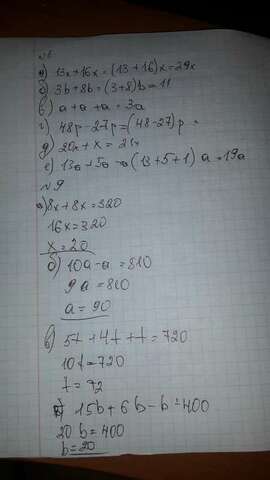 а) 13x+16x=(13+16)x=29x
б) 3b+8b=(3+8)b=11
в) a+a+a=3a
г) 48p-27p=(48-27)p=
д) 20x+x=21x
е) 13a+5a+a(13+5+1)a=19a
№9
а) 8x+8x=320
16x=320
x=20
б) 10a-a=810
9a=810
a=90
в) 5t+4t+t=720
10t=720
t=72
г) 15b+6b-b=400
20b=400
b=20